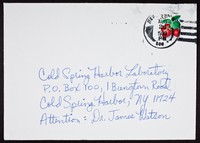 Cold Spring Harbor Laboratory
P.O. Box 100, 1 Bungtown Road
Cold Spring Harbor, NY 11724
Attention: Dr. James Watson